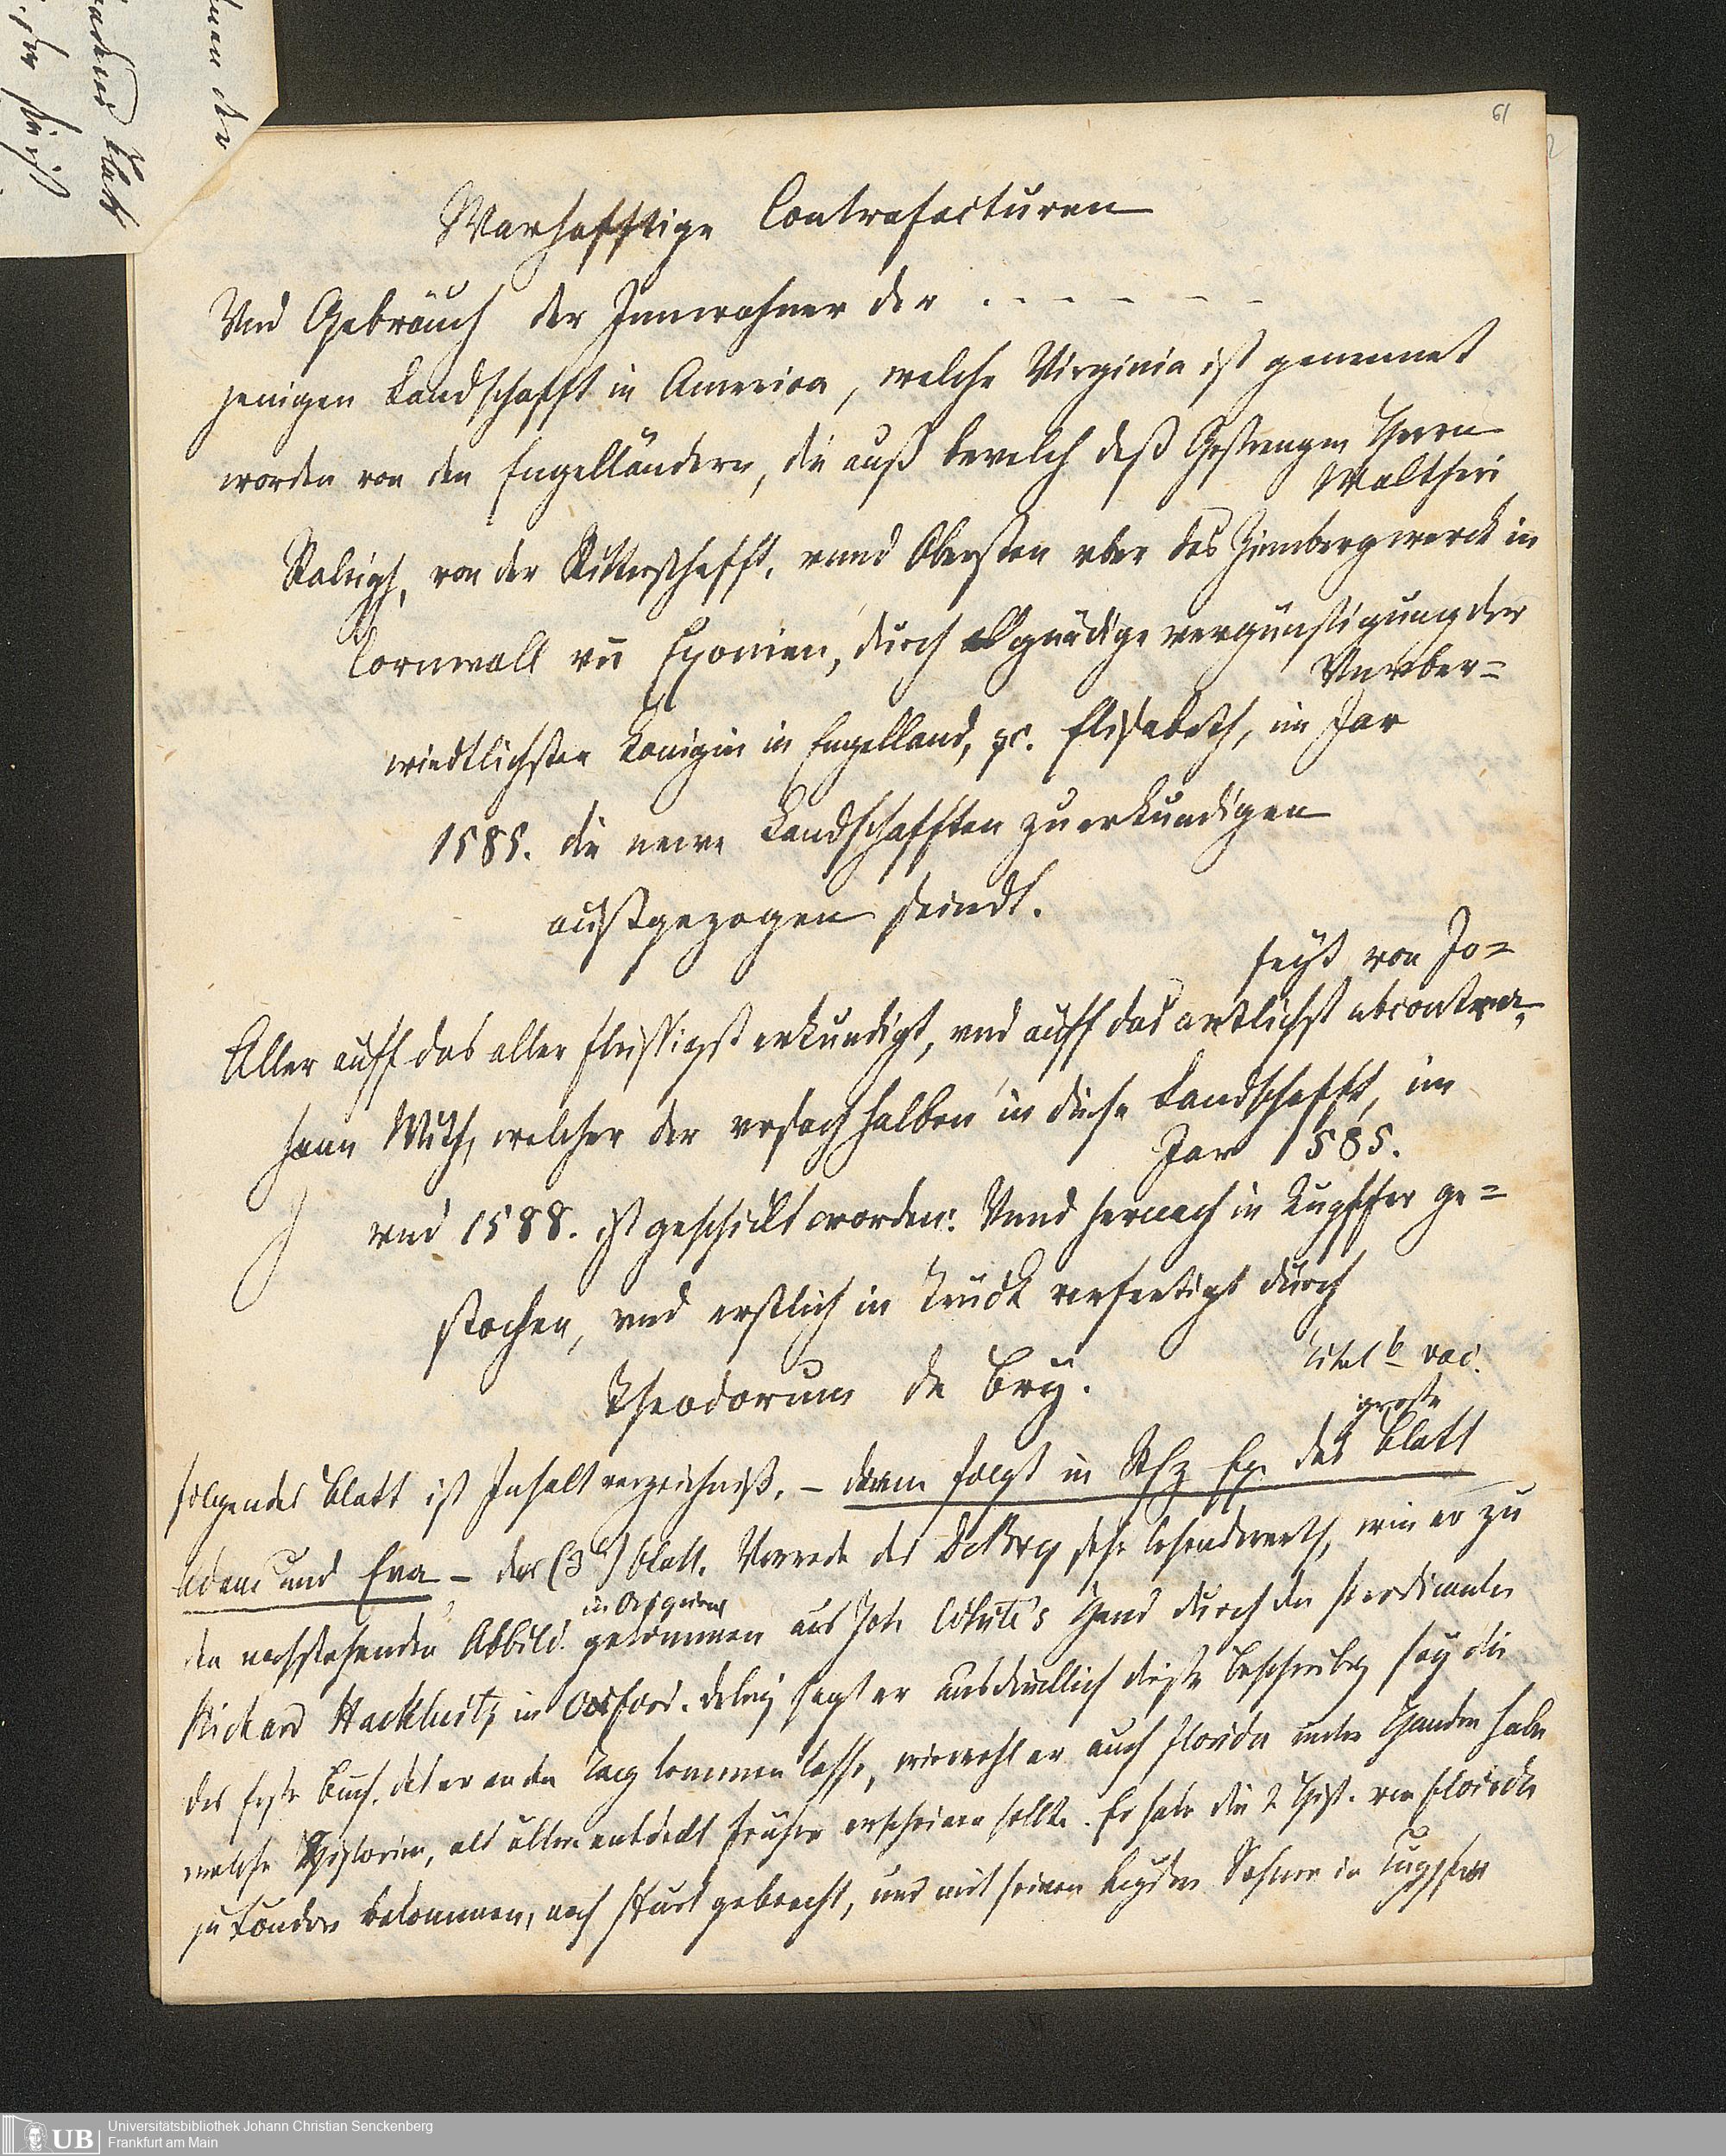 61
Warhafftige Contrafacturen
Vnd Gebräuch der Innwohner der . - - - - -
jenigen Landschafft in America, welche Virginia ist genennet
worden von den Engelländern, die auß bevelch deß Gestrengen Herrn
Waltheri
Raleigh, von der Ritterschafft, vnnd Obersten vber das Zinnbergwerck in
Cornwall vn̄ Exonien, durch gnädige vergünstigung der
Vnvber=
windtlichsten Konigin in Engelland, ꝛc. Elisabeth, im Jar
1585. die newe Landschafften zu erkundigen
außgezogen seindt.
Aller auff das aller fleissigst erkundigt, vnd auff das artlichst abcontra-
feyt von Jo=
hann With, welcher der vrsach halben in diese Landschafft, im
Jar 1585.
vnd 1588. ist geschickt worden: Vnnd hernach in Kupffer ge=
stochen, vnd erstlich in Truck verfertigt durch
Theodorum de Bry.
Titel b vac.
folgendes Blatt ist Inhaltverzeichniß. – dann folgt in Ex. das große Blatt
Adam und Eva – das (3t) Blatt. Vorrede des De Bry sehr lesenswerth, wie er zu
den nachstehenden Abbild. in Origine gekommen aus Joh White's Hand durch den
Richard Hackluit, in Oxford. dabey sagt er ausdrücklich diese Beschreibg sey die
das erste Buch, das er an den Tag kommen lasse, wiewohl er auch Florida unter Handen habe
welche Historien, als älter entdeckt früher erscheinen sollte. Er habe die 2 Hist. von Florida
zu London bekommen, nach gebracht, und mit seinen beyden Söhnen in Kupffer
Universitätsbibliothek Johann Christian Senckenberg
Frankfurt am Main
UB